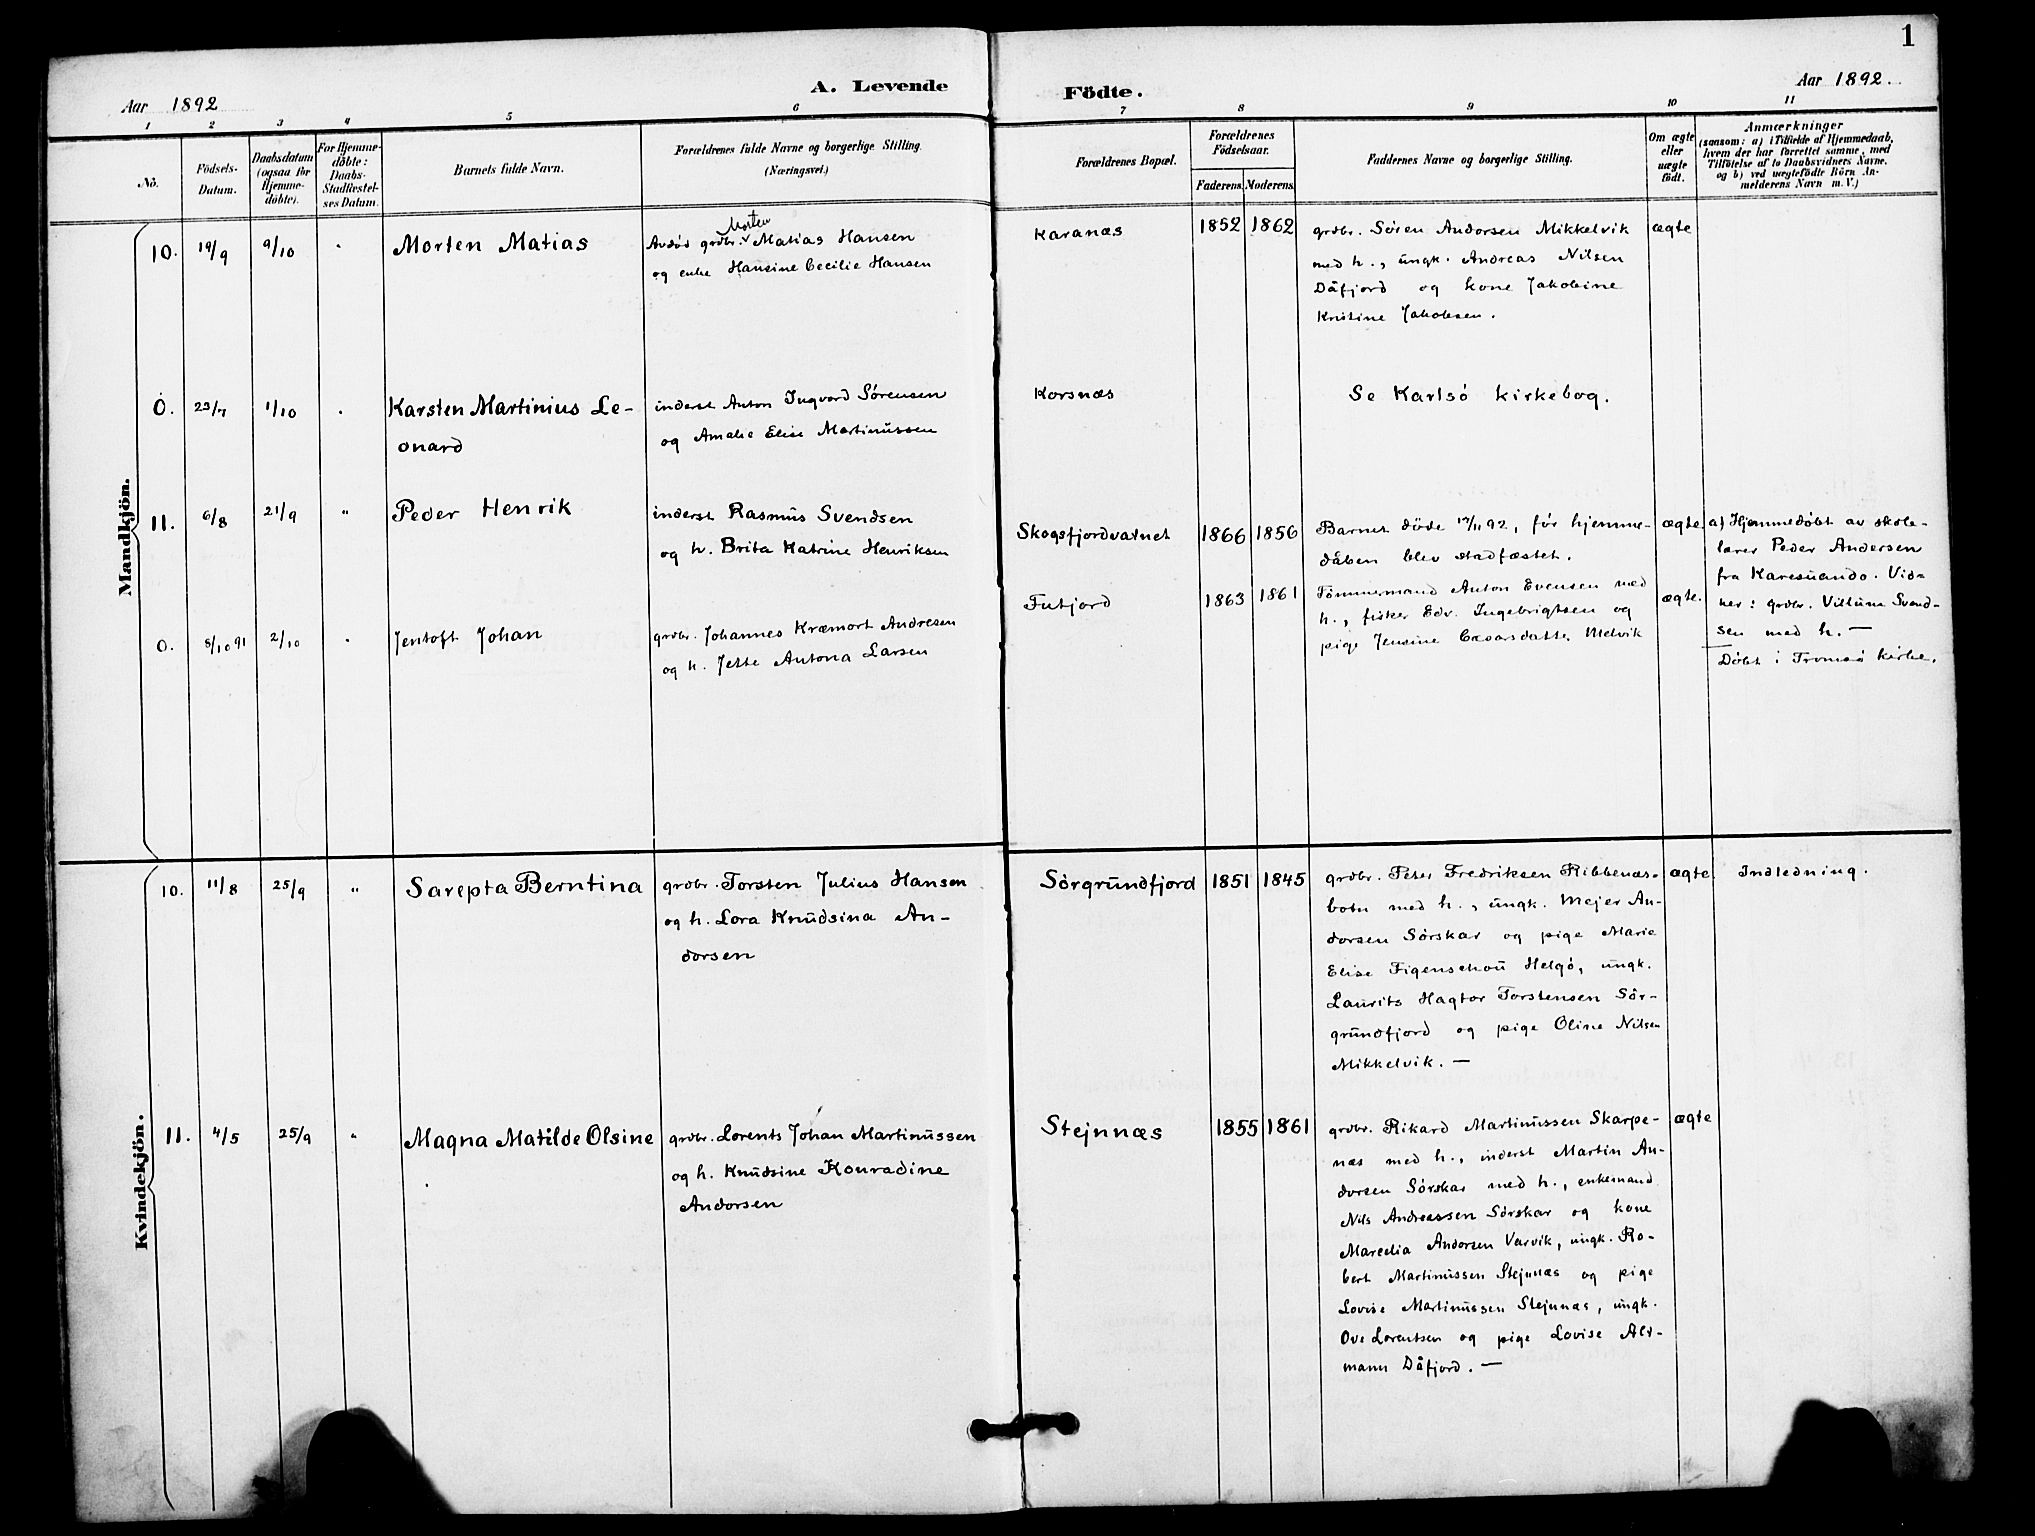 1
Aar 1892
A. Levende
Födte.
Aar 1892.
1 2 3 4 5 6 7 8 9 10 11
No.
Födsels-
Datum.
Daabsdatum
(ogsaa for
Hjemme-
döbte).
For Hjemme-
döbte:
Daabs-
Stadfæstel-
ses Datum.
Barnets fulde Navn.
Forældrenes fulde Navne og borgerlige Stilling.
(Næringsvei.)
Forældrenes Bopæl.
Forældrenes
Födselsaar.
Faderens. Moderens.
Faddernes Navne og borgerlige Stilling.
Om ægte
eller
uægte
födt.
Anmærkninger
(saasom: a) i Tilfælde af Hjemmedaab,
hvem der har forrettet samme, med
Tilföielse af to Daabsvidners Navne,
og b) ved uægtefödte Börn An-
melderens Navn m. V.)
Mandkjön.
10.
19/9
9/10
"
Morten Matias
Avdød grdbr. Morten Matias Hansen
og enke Hansine Cecilie Hansen
Karanæs
1852
1862
grdbr. Søren Andorsen Mikkelvik
med h., ungk. Andreas Nilsen
Dåfjord og kone Jakobine
Kristine Jakobsen.
ægte
0.
23/7
1/10
"
Karsten Martinius Le-
onard
inderst Anton Ingvard Sørensen
og Amalie Elise Martinussen
Korsnæs
Se Karlsö kirkebog.
11.
6/8
21/9
"
Peder Henrik
inderst Rasmus Svendsen
og h. Brita Katrine Henriksen
Skogsfjordvatnet
1866
1856
Barnet døde 17/11 92, før hjemme-
dåben blev stadfæstet.
ægte
a) Hjemmedøbt av skole-
lærer Peder Andersen
fra Karesuando. Vid-
ner: grdbr. Villum Svend-
sen med h. —
0.
8/10 91
2/10
"
Jentoft Johan
grdbr. Johannes Kræmort Andresen
og h. Jette Antona Larsen
Futjord
1863
1861
Tömmermand Anton Evensen med
h., fisker Edv. Ingebrigtsen og
pige Jensine Cæsarsdatter Melvik
ægte.
Døbt i Tromsø kirke.
Kvindekjön.
10.
11/8
25/9
"
Sarepta Berntina
grdbr. Torsten Julius Hansen
og h. Lora Knudsina An-
dorsen
Sörgrundfjord
1851
1845
grdbr. Peter Fredriksen Ribbenæs-
botn med h., ungk. Mejer An-
dorsen Sörskar og pige Marie
Elise Figenschou Helgö, ungk.
Laurits Hagtor Torstensen Sör-
grundfjord og pige Oline Nilsen
Mikkelvik. —
ægte
Indledning.
11.
4/5
25/9
"
Magna Matilde Olsine
grdbr. Lorents Johan Martinussen
og h. Knudsine Konradine
Andorsen
Stejnnæs
1855
1861
grdbr. Rikard Martinussen Skarpe-
næs med h., inderst Martin An-
dorsen Sörskar med h., enkemand
Nils Andreassen Sörskar og kone
Marcelia Andorsen Vervik, ungk. Ro-
bert Martinussen Stejnnæs og pige
Lovise Martinussen Stejnnæs, ungk.
Ove Lorentsen og pige Lovise Alt-
mann Dåfjord. —
ægte